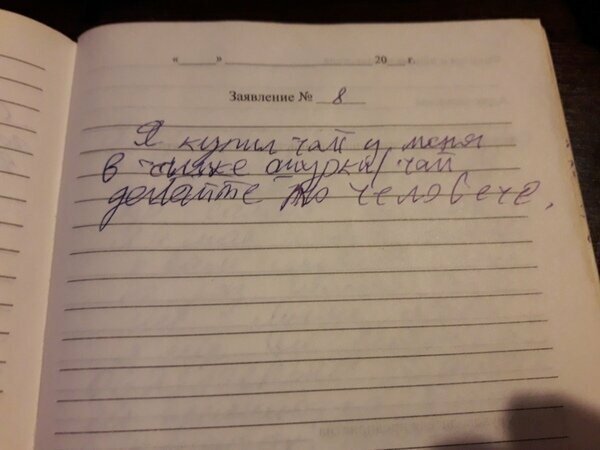 « » 20 г.
Заявление № 8
Я купил чай у меня
в чяжке ошурки, чай
делайте по человече.